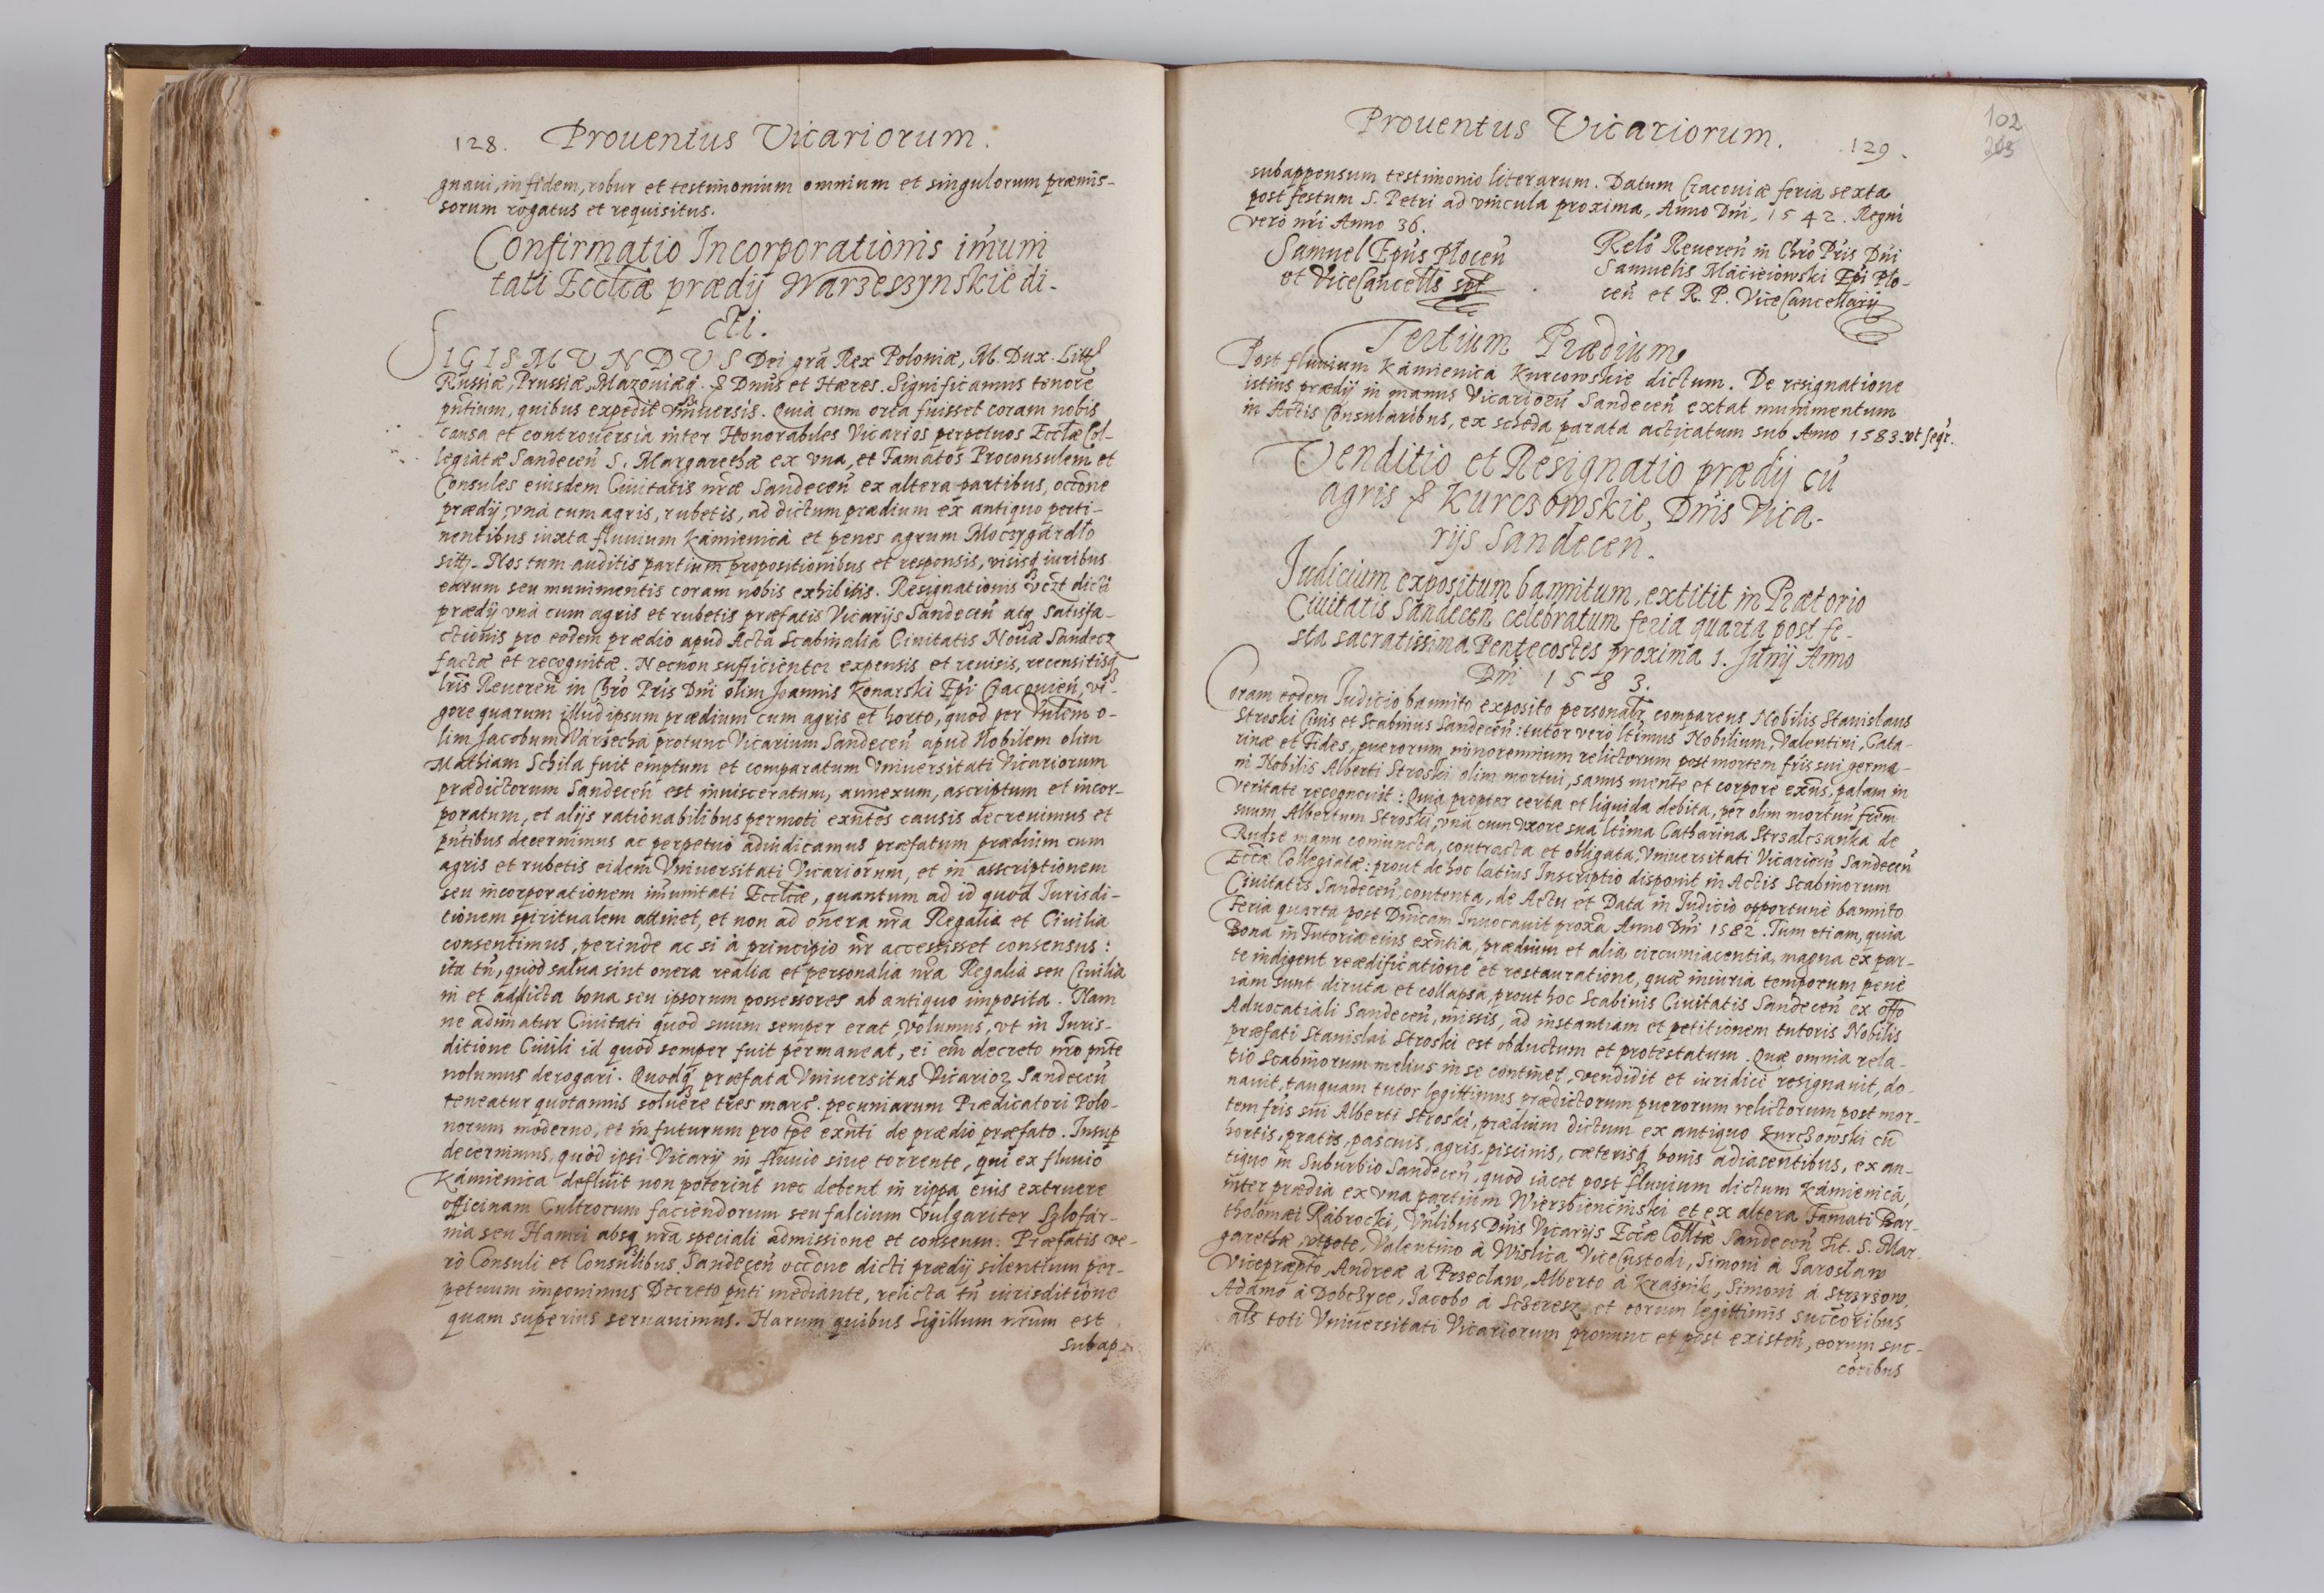 128. Prouentus Vicariorum.
gnaui, in fidem, robur et testimonium omnium et singulorum præmis-
sorum rogatus et requisitus.
Confirmatio Incorporationis imuni
tati Eccliæ prædij Warzeszynskie di-
cti.
SIGISMVNDVS Dei gra Rex Poloniæ, M. Dux Litt
Russiæ, Prussiæ, Mazouiæq. Dnus et Hæres. Significamus tenore
pntium, quibus expedit vniuersis. Quia cum orta fuisset coram nobis
causa et controuersia inter Honorabiles Vicarios perpetuos Eccliæ Col-
legiatæ Sandecen S. Margarethæ ex vna, et Famatos Proconsulem et
Consules eiusdem Ciuitatis nræ Sandecen ex altera partibus, occone
prædij, vna cum agris, rubetis, ad dictum prædium ex antiquo perti-
nentibus iuxta fluuium Kamienica et penes agrum Moczygardlo
sitt. Nos tum auditis partium propositionibus et responsis, visisq iuribus
earum seu munimentis coram nobis exhibitis. Resignationis dicti
prædij vna cum agris et rubetis præfatis Vicarijs Sandecen atq satisfa-
ctionis pro eodem prædio apud Acta Scabinalia Ciuitatis Nouæ Sandecz
factæ et recognitæ. Necnon sufficienter expensis et reuisis, recensitisq
lris Reueren in Chro Pris Dni olim Joannis Konarski Epi Cracouien, vi-
gore quarum illud ipsum prædium cum agris et horto, quod per Vnlem o-
lim Jacobum Warzecha protunc Vicarium Sandecen apud Nobilem olim
Mathiam Schila fuit emptum et comparatum Vniuersitati Vicariorum
prædictorum Sandecen est inuisceratum, annexum, ascriptum et incor-
poratum, et alijs rationabilibus permoti exntes causis decreuimus et
pntibus decernimus ac perpetuo adiudicamus præfatum prædium cum
agris et rubetis eidem Vniuersitati Vicariorum, et in asscriptionem
seu incorporationem imunitati Eccliæ, quantum ad id quod Jurisdi-
tionem spiritualem attinet, et non ad onera nra Regalia et Ciuilia
consentimus, perinde ac si à principio nr accessisset consensus:
ita tn, quod salua sint onera realia et personalia nra Regalia seu Ciuilia
in et addicta bona seu ipsorum possessores ab antiquo imposita. Nam
ne adimatur Ciuitati quod suum semper erat volumus, vt in Juris-
ditione Ciuili id quod semper fuit permaneat, ei em decreto nro pnte
nolumus derogari. Quodq præfata Vniuersitas Vicarioz Sandecen
teneatur quotannis soluere tres marc. pecuniarum Prædicatori Polo-
norum moderno, et in futurum pro tpe exnti de prædio præfato. Insup
decernimus, quod ipsi Vicarij in fluuio siue torrente, qui ex fluuio
Kamienica defluit non poterint nec debent in rippa eius extruere
officinam Cultrorum faciendorum seu falcium vulgariter Szlofar-
nia seu Hamri absq nra speciali admissione et consensu. Præfatis ve-
rò Consuli et Consulibus Sandecen occone dicti prædij silentium per-
petuum imponimus Decreto pnti mediante, relicta tn iurisditione
quam superius seruauimus. Harum quibus Sigillum nrum est
subap-
Prouentus Vicariorum. 129.
102
subappensum testimonio literarum. Datum Cracouiæ feria sexta
post festum S. Petri ad vincula proxima, Anno Dni, 1542. Regni
vero nri Anno 36.
Samuel Epus Plocen
et ViceCancells spt
Relo Reueren in Chro Pris Dni
Samuelis Macieiowski Epi Plo-
cen et R. P. ViceCancellarij
Tertium Prædium
Post fluuium Kamienica Kurcowskie dictum. De resignatione
istius prædij in manus Vicarioru Sandecen extat munimentum
in Actis Consularibus, ex scheda parata acticatum sub Anno 1583 vt seqr.
Venditio et Resignatio prædij cu
agris Kurczowskie, Dnis Vica-
rijs Sandecen.
Judicium expositum bannitum, extitit in Prætorio
Ciuitatis Sandecen celebratum feria quarta post fe-
sta sacratissima Pentecostes proxima 1. Junij Anno
Dni 1583.
Coram eodem Judicio bannito exposito personalr comparens Nobilis Stanislaus
Stroski Ciuis et Scabinus Sandecen: tutor vero ltimus Nobilium, Valentini, Cata-
rinæ et Fides, puerorum minorennium relictorum post mortem fris sui germa-
ni Nobilis Alberti Stroski olim mortui, sanus mente et corpore exns, palam in
veritate recognouit: Quia propter certa et liquida debita, per olim mortuu frem
suum Albertum Stroski, vna cum vxore sua ltima Catharina Strzalcsanka de
Rudse manu coniuncta, contracta et obligata, Vniuersitati Vicarioru Sandecen
Eccæ Collegiatæ: prout de hoc latius Inscriptio disponit in Actis Scabinorum
Ciuitatis Sandecen contenta, de Actu et Data in Judicio opportunè bannito
Feria quarta post Dnicam Inuocauit proxa Anno Dni 1582. Tum etiam, quia
Bona in Tutoria eius exntia, prædium et alia circumiacentia, magna ex par-
te indigent reædificatione et restauratione, quæ iniuria temporum penè
iam sunt diruta et collapsa, prout hoc Scabinis Ciuitatis Sandecen ex offo
Aduocatiali Sandecen, missis, ad instantiam et petitionem tutoris Nobilis
præfati Stanislai Stroski est obductum et protestatum. Quæ omnia rela-
tio Scabinorum melius in se continet, vendidit et iuridici resignauit, do-
nauit, tanquam tutor legittimus prædictorum puerorum relictorum post mor-
tem fris sui Alberti Stroski, prædium dictum ex antiquo Kurchowski cu
hortis, pratis, pascuis, agris, piscinis, cæterisq bonis adiacentibus, ex an-
tiquo in Suburbio Sandecen, quod iacet post fluuium dictum Kamienica,
inter prædia ex vna partium Wierzbiencinski et ex altera Famati Bar-
tholomæi Rabrocki, Vnlibus Dnis Vicarijs Eccæ Colltæ Sandecen tit. S. Mar-
garethæ, vtpote, Valentino à Wislica ViceCustodi, Simoni à Jaroslaw
Vicepræpto, Andreæ à Przeclaw, Alberto à Krasnik, Simoni à
Adamo à Dobczyce, Jacobo à et eorum legittimis successoribus
als toti Vniuersitati Vicariorum pronunc et post existen, eorum suc-
coribus